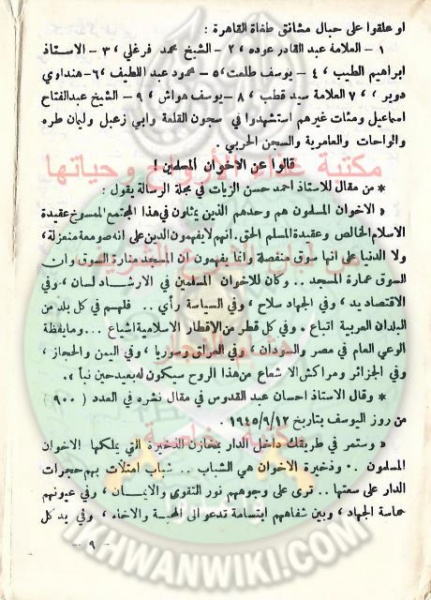 او علقوا على حبال مشانق طغاة القاهرة :
١ – العلامة عبد القادر عوده ، ٢ – الشيخ محمد فرغلي ، ٣ – الاستاذ
ابراهيم الطيب ، ٤ – يوسف طلعت ، ٥ – محمود عبد اللطيف ، ٦ – هنداوي
دوير ، ، ٧ العلامة سيد قطب ، ٨ – يوسف هواش ، ٩ – الشيخ عبدالفتاح
اسماعيل ومئات غيرهم استشهدوا في سجون القلعة وابي زعبل وليمان طره
والواحات والعامرية والسجن الحربي
قالوا عن الاخوان المسلمين !
* من مقال للاستاذ احمد حسن الزيات في مجلة الرسالة يقول :
« الاخوان المسلمون هم وحدهم الذين يمثلون في هذا المجتمع الممسوخ عقيدة
الاسلام الخالص وعقيدة المسلم الحق . انهم لا يفهمون الدين على انه صومعة منعزلة ،
ولا الدنيا على انها سوق منفصلة وانما يفهمون ان المسجد منارة السوق وان
السوق عمارة المسجد .. وكان للاخوان المسلمين في الارشاد لسان ، وفي
الاقتصاد يد ، وفي الجهاد سلاح ، وفي السياسة رأي .. فلهم في كل بلد من
البلدان العربية اتباع . وفي كل قطر من الاقطار الاسلامية اشياع ... وما يقظة
الوعي العام في مصر والسودان ، وفي العراق وسوريا ، وفي اليمن والحجاز ،
وفي الجزائر ومراكش الا شعاع من هذا الروح سيكون له بعد حين نبأ » .
* وقال الاستاذ احسان عبد القدوس في مقال نشره في العدد ( ٩٠٠ )
من روز اليوسف بتاريخ ١٩٤٥/٩/١٢ .
« وستمر في طريقك داخل الدار بمخازن الذخيرة التي يملكها الاخوان
المسلمون .. وذخيرة الاخوان هي الشباب .. شباب امتلأت بهم حجرات
الدار على سعتها .. ترى على وجوههم نور التقوى والايمان ، وفي عيونهم
حماسة الجهاد ، وبين شفاههم ابتسامة تدعو الى المحبة والاخاء ، وفي يد كل
– ٩ –
مكتبة غذاء الأرواح وحياتها
IKHWANWIKI.COM